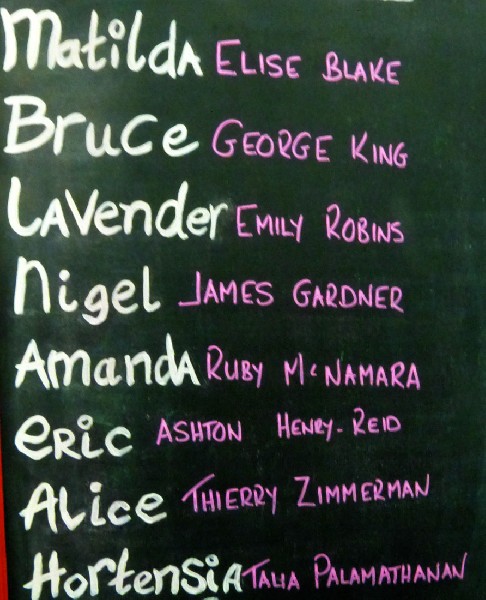 Matilda ELISE BLAKE
Bruce GEORGE KING
LAVender EMILY ROBINS
Nigel JAMES GARDNER
Amanda RUBY McNAMARA
eric ASHTON HENRY-REID
Alice THIERRY ZIMMERMAN
HortensiA TALIA PALAMATHANAN